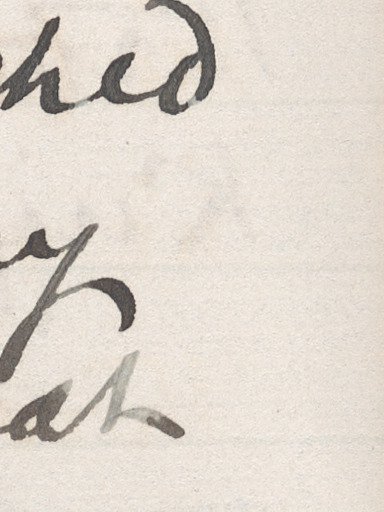 hed
y
at